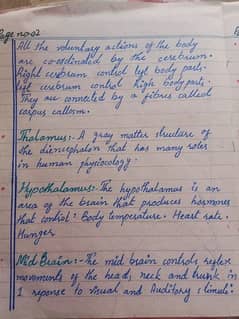 Page no: 02
All the voluntary actions of the body
are co-ordinated by the cerebrum.
Right cerebrum control left body parts.
Left cerebrum control Righ body parts.
They are connected by a fibres called
corpus callosm.
Thalamus:- A gray matter structure of
the diencephalon that has many roles
in human physiocology.
Hypothalamus:- The hypothalamus is an
area of the brain that produces hormones
that control: Body temperature. Heart rate.
Hunger.
Mid Brain:- The mid brain controls reflex
movements of the head, neck and trunk in
reponse to visual and Auditory stimuli.